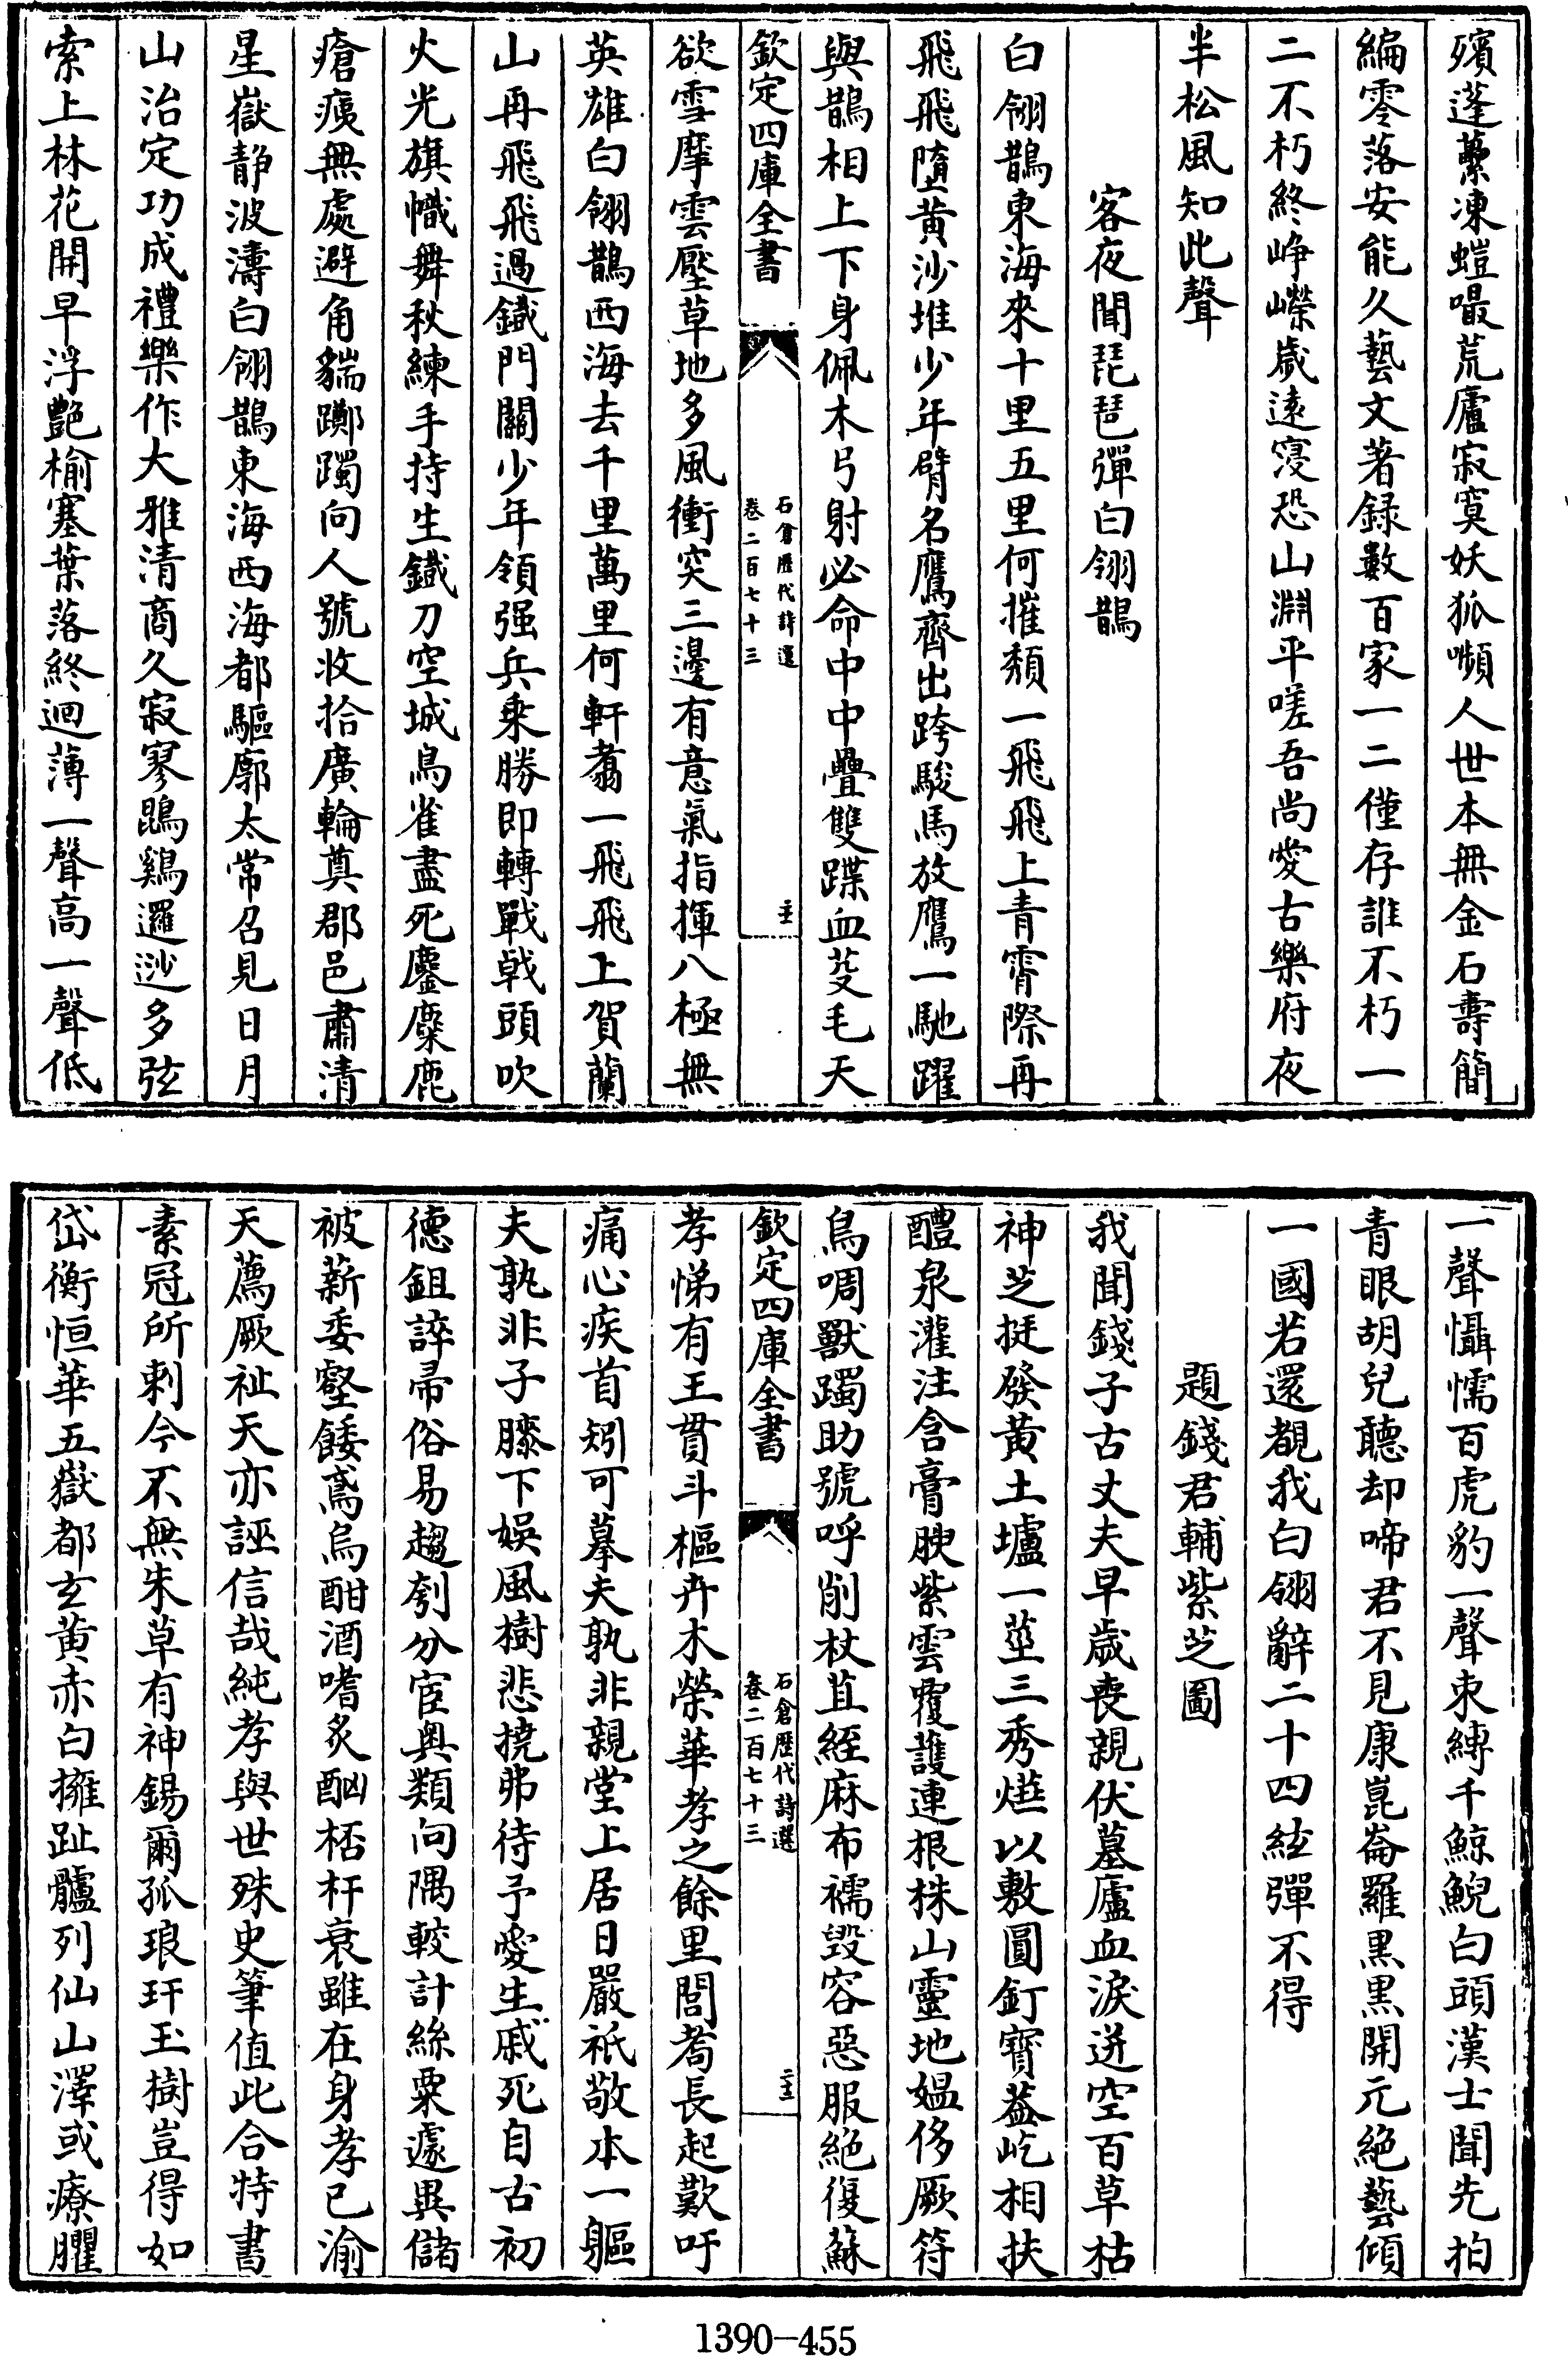 殯蓬虆凍螘嘬荒廬寂寞妖狐嚬人世本無金石壽簡
編零落安能久藝文著録數百家一二僅存誰不朽一
二不朽終崢嶸歲遠寖恐山淵平嗟吾尚愛古樂府夜
半松風知此聲
客夜聞琵琶彈白翎鵲
白翎鵲東海來十里五里何摧頽一飛飛上青霄際再
飛飛墮黃沙堆少年臂名鷹齊出跨駿馬放鷹一馳躍
與鵲相上下身佩木弓射必命中中疊雙蹀血芟毛天
欽定四庫全書
石倉歷代詩選
卷二百七十三
欲雪摩雲壓草地多風衝突三邊有意氣指揮八極無
英雄白翎鵲西海去千里萬里何軒翥一飛飛上賀蘭
山再飛飛過鐵門關少年領强兵乗勝即轉戰戟頭吹
火光旗幟舞秋練手持生鐵刀空城鳥雀盡死麈麋鹿
瘡痍無處避角貒躑躅向人號收拾廣輪奠郡邑肅清
星嶽静波濤白翎鵲東海西海都驅廓太常召見日月
山治定功成禮樂作大雅清商久寂寥鵾鷄邏逤多弦
索上林花開早浮艶榆塞葉落終迴薄一聲高一聲低
一聲懾懦百虎豹一聲束縛千鯨鯢白頭漢士聞先拍
青眼胡兒聽却啼君不見康崑崙羅黑黑開元絶藝傾
一國若還覩我白翎辭二十四絃彈不得
題錢君輔紫芝圖
我聞錢子古丈夫早歲喪親伏墓廬血淚迸空百草枯
神芝挺發黃土壚一莖三秀爀以敷圓釘寶葢屹相扶
醴泉灌注含膏腴紫雲覆護連根株山靈地媪侈厥符
鳥啁獸躅助號呼削杖苴絰麻布襦毀容惡服絶復蘇
欽定四庫全書
石倉歷代詩選
卷二百七十三
孝悌有王貫斗樞卉木榮華孝之餘里閭耉長起歎吁
痛心疾首矧可摹夫孰非親堂上居日嚴祇敬本一軀
夫孰非子膝下娛風樹悲撓弗待予愛生戚死自古初
德鉏誶帚俗易趨刳分宦奥類向隅較計絲粟遽異儲
被薪委壑餧鳶烏酣酒嗜炙酗桮杅衰雖在身孝已渝
天薦厥祉天亦誣信哉純孝與世殊史筆值此合特書
素冠所刺今不無朱草有神錫爾孤琅玕玉樹豈得如
岱衡恒華五嶽都玄黃赤白擁趾髗列仙山澤或療臞
1390-455